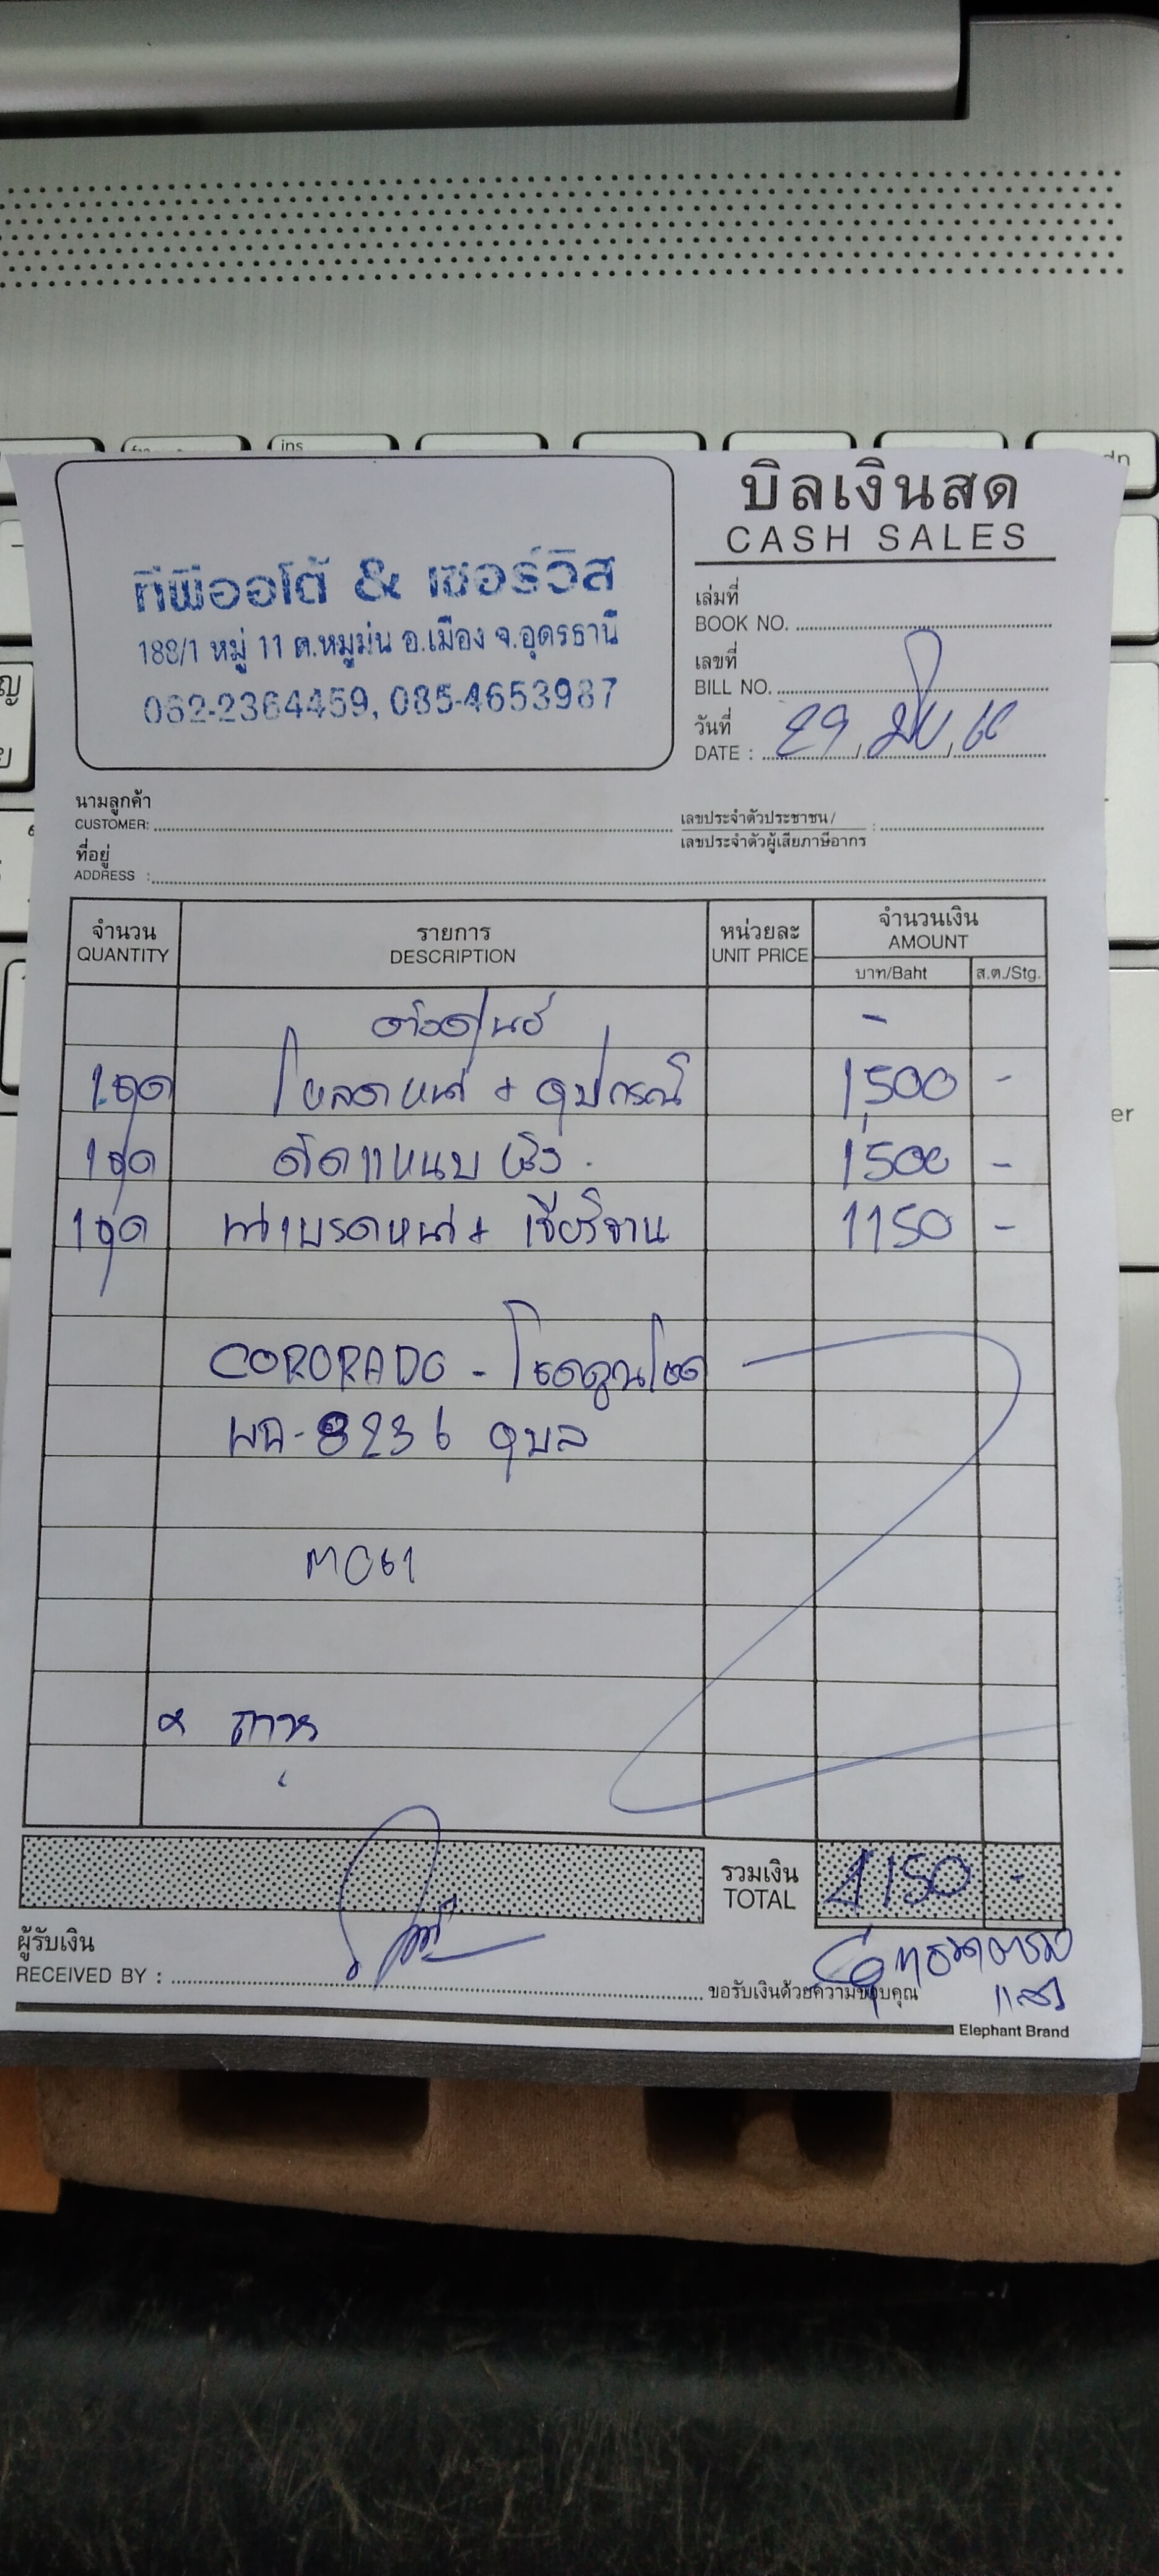 ins
บิลเงินสด
CASH SALES
ทีพีออโต้ & เซอร์วิส
188/1 หมู่ 11 ต.หมูม่น อ.เมือง จ.อุดรธานี
062-2364459, 085-4653987
เล่มที่
BOOK NO.
เลขที่
BILL NO.
วันที่
DATE : 29 / มิย / 66
นามลูกค้า
CUSTOMER:
เลขประจำตัวประชาชน /
เลขประจำตัวผู้เสียภาษีอากร :
ที่อยู่
ADDRESS :
จำนวน QUANTITY รายการ DESCRIPTION หน่วยละ UNIT PRICE จำนวนเงิน AMOUNT
บาท/Baht ส.ต./Stg.
ตั้งศูนย์ -
1ชุด โหลดหน้า + อุปกรณ์ 1,500 -
1ชุด ดัดแหนบ 1500 -
1ชุด ผ้าเบรคหน้า + เจียร์จาน 1150 -
CORORADO -
8236 อุบล
MC61
รวมเงิน
TOTAL 4150 -
ผู้รับเงิน
RECEIVED BY :
ขอรับเงินด้วยความขอบคุณ
แล้ว
Elephant Brand